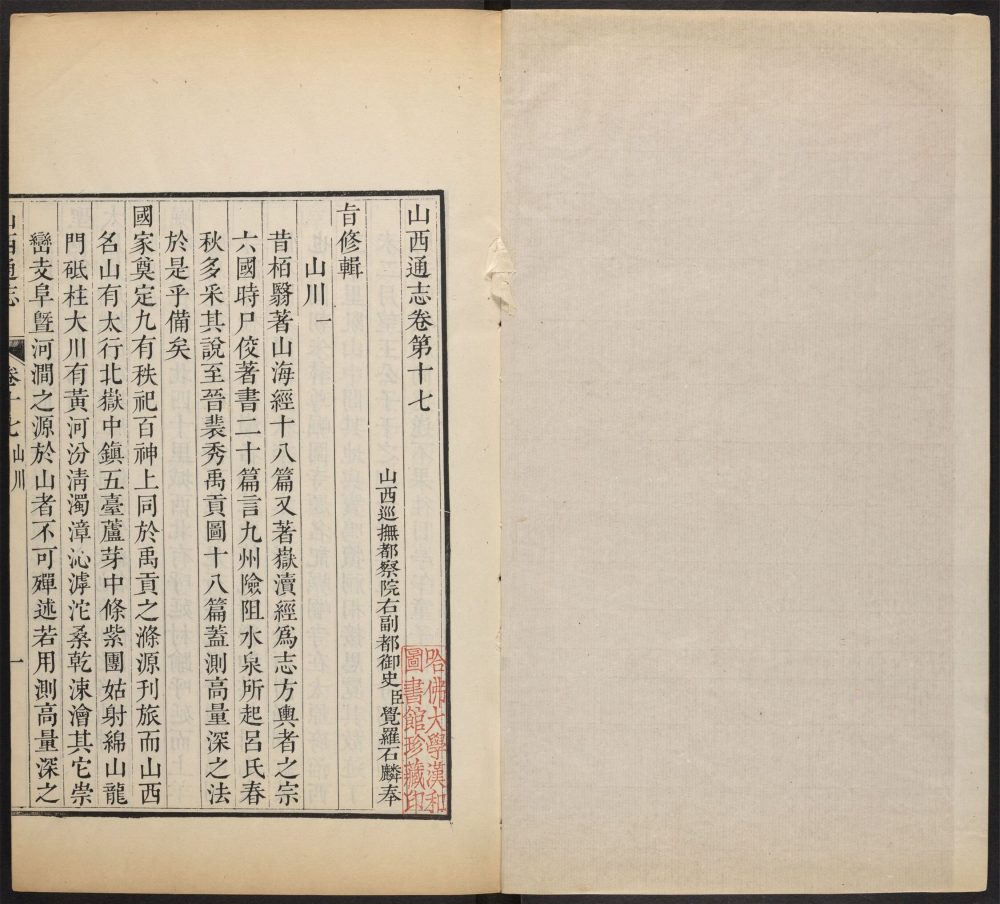 山西通志卷第十七
山西巡撫都察院右副都御史臣覺羅石麟奉
旨修輯
山川一
昔栢翳著山海經十八篇又著嶽瀆經爲志方輿者之宗
六國時尸佼著書二十篇言九州險阻水泉所起呂氏春
秋多采其說至晉裴秀禹貢圖十八篇蓋測高量深之法
於是乎備矣
國家奠定九有秩祀百神上同於禹貢之滌源刊旅而山西
名山有太行北嶽中鎮五臺蘆芽中條紫團姑射綿山龍
門砥柱大川有黃河汾淸濁漳沁滹沱桑乾涑澮其它崇
巒支阜曁河澗之源於山者不可殫述若用測高量深之
山西通志
卷十七山川
一
哈佛大學漢和
圖書館珍藏印